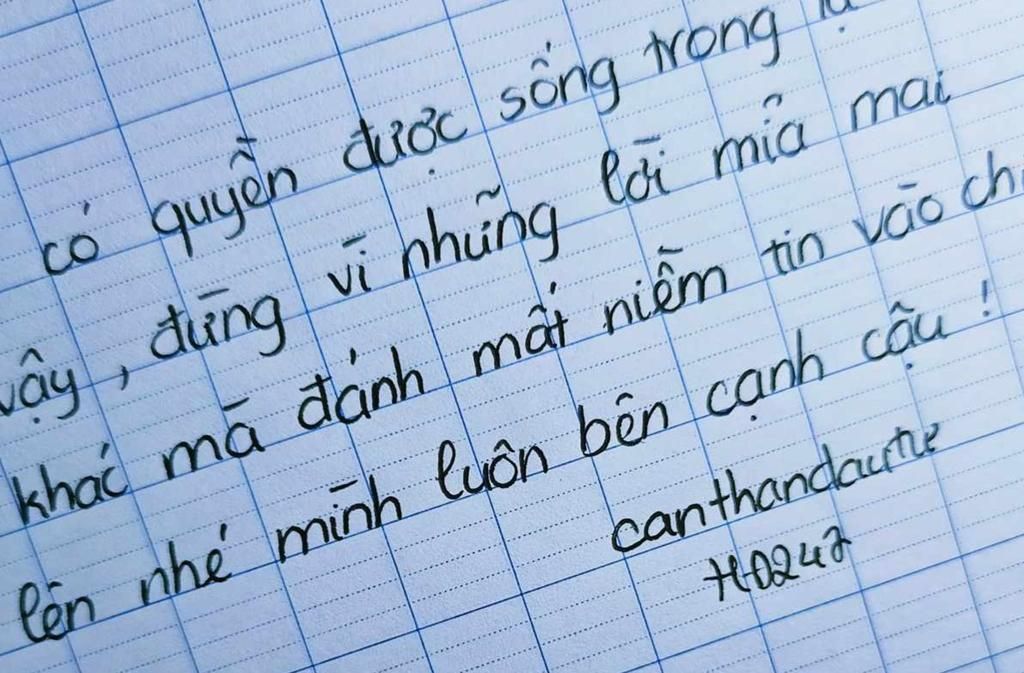 có quyền được sống trong
vậy, đừng vì những lời mỉa mai
khác mà đánh mất niềm tin vào
lên nhé mình luôn bên cạnh cậu!
canthandautue
H0247